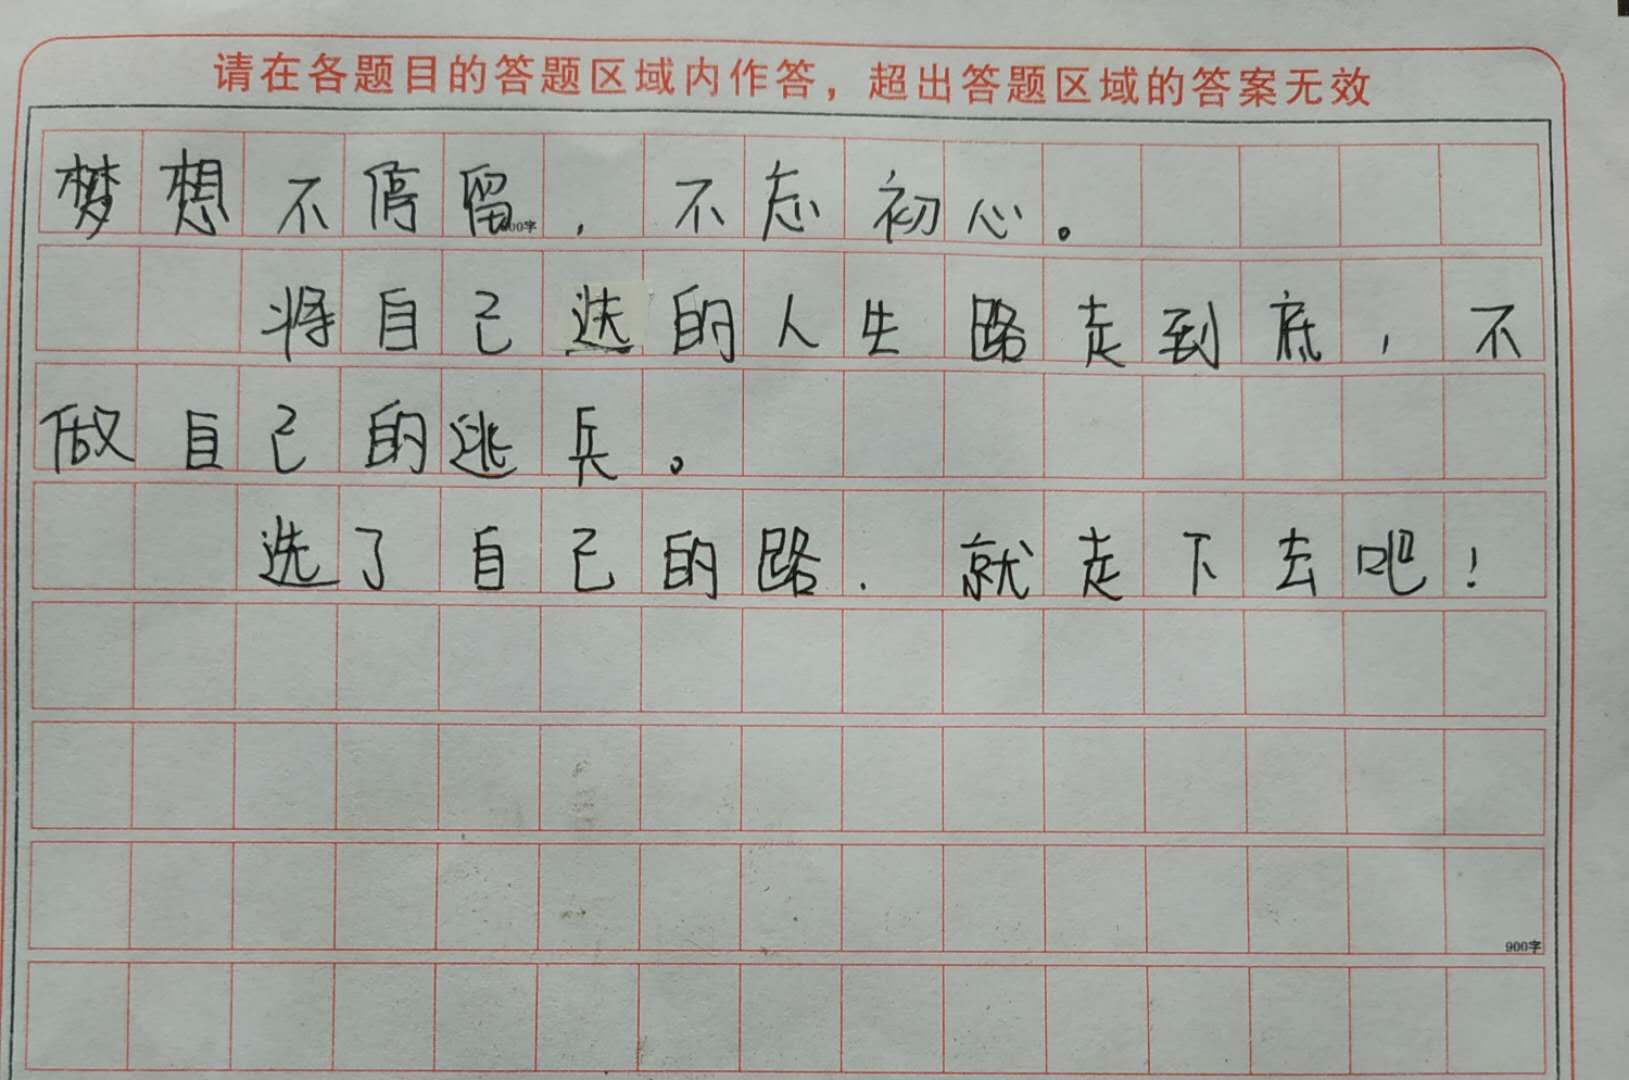 请在各题目的答题区域内作答，超出答题区域的答案无效
梦想不停留，不忘初心。
将自己选的人生路走到底，不
做自己的逃兵。
选了自己的路．就走下去吧！
900字